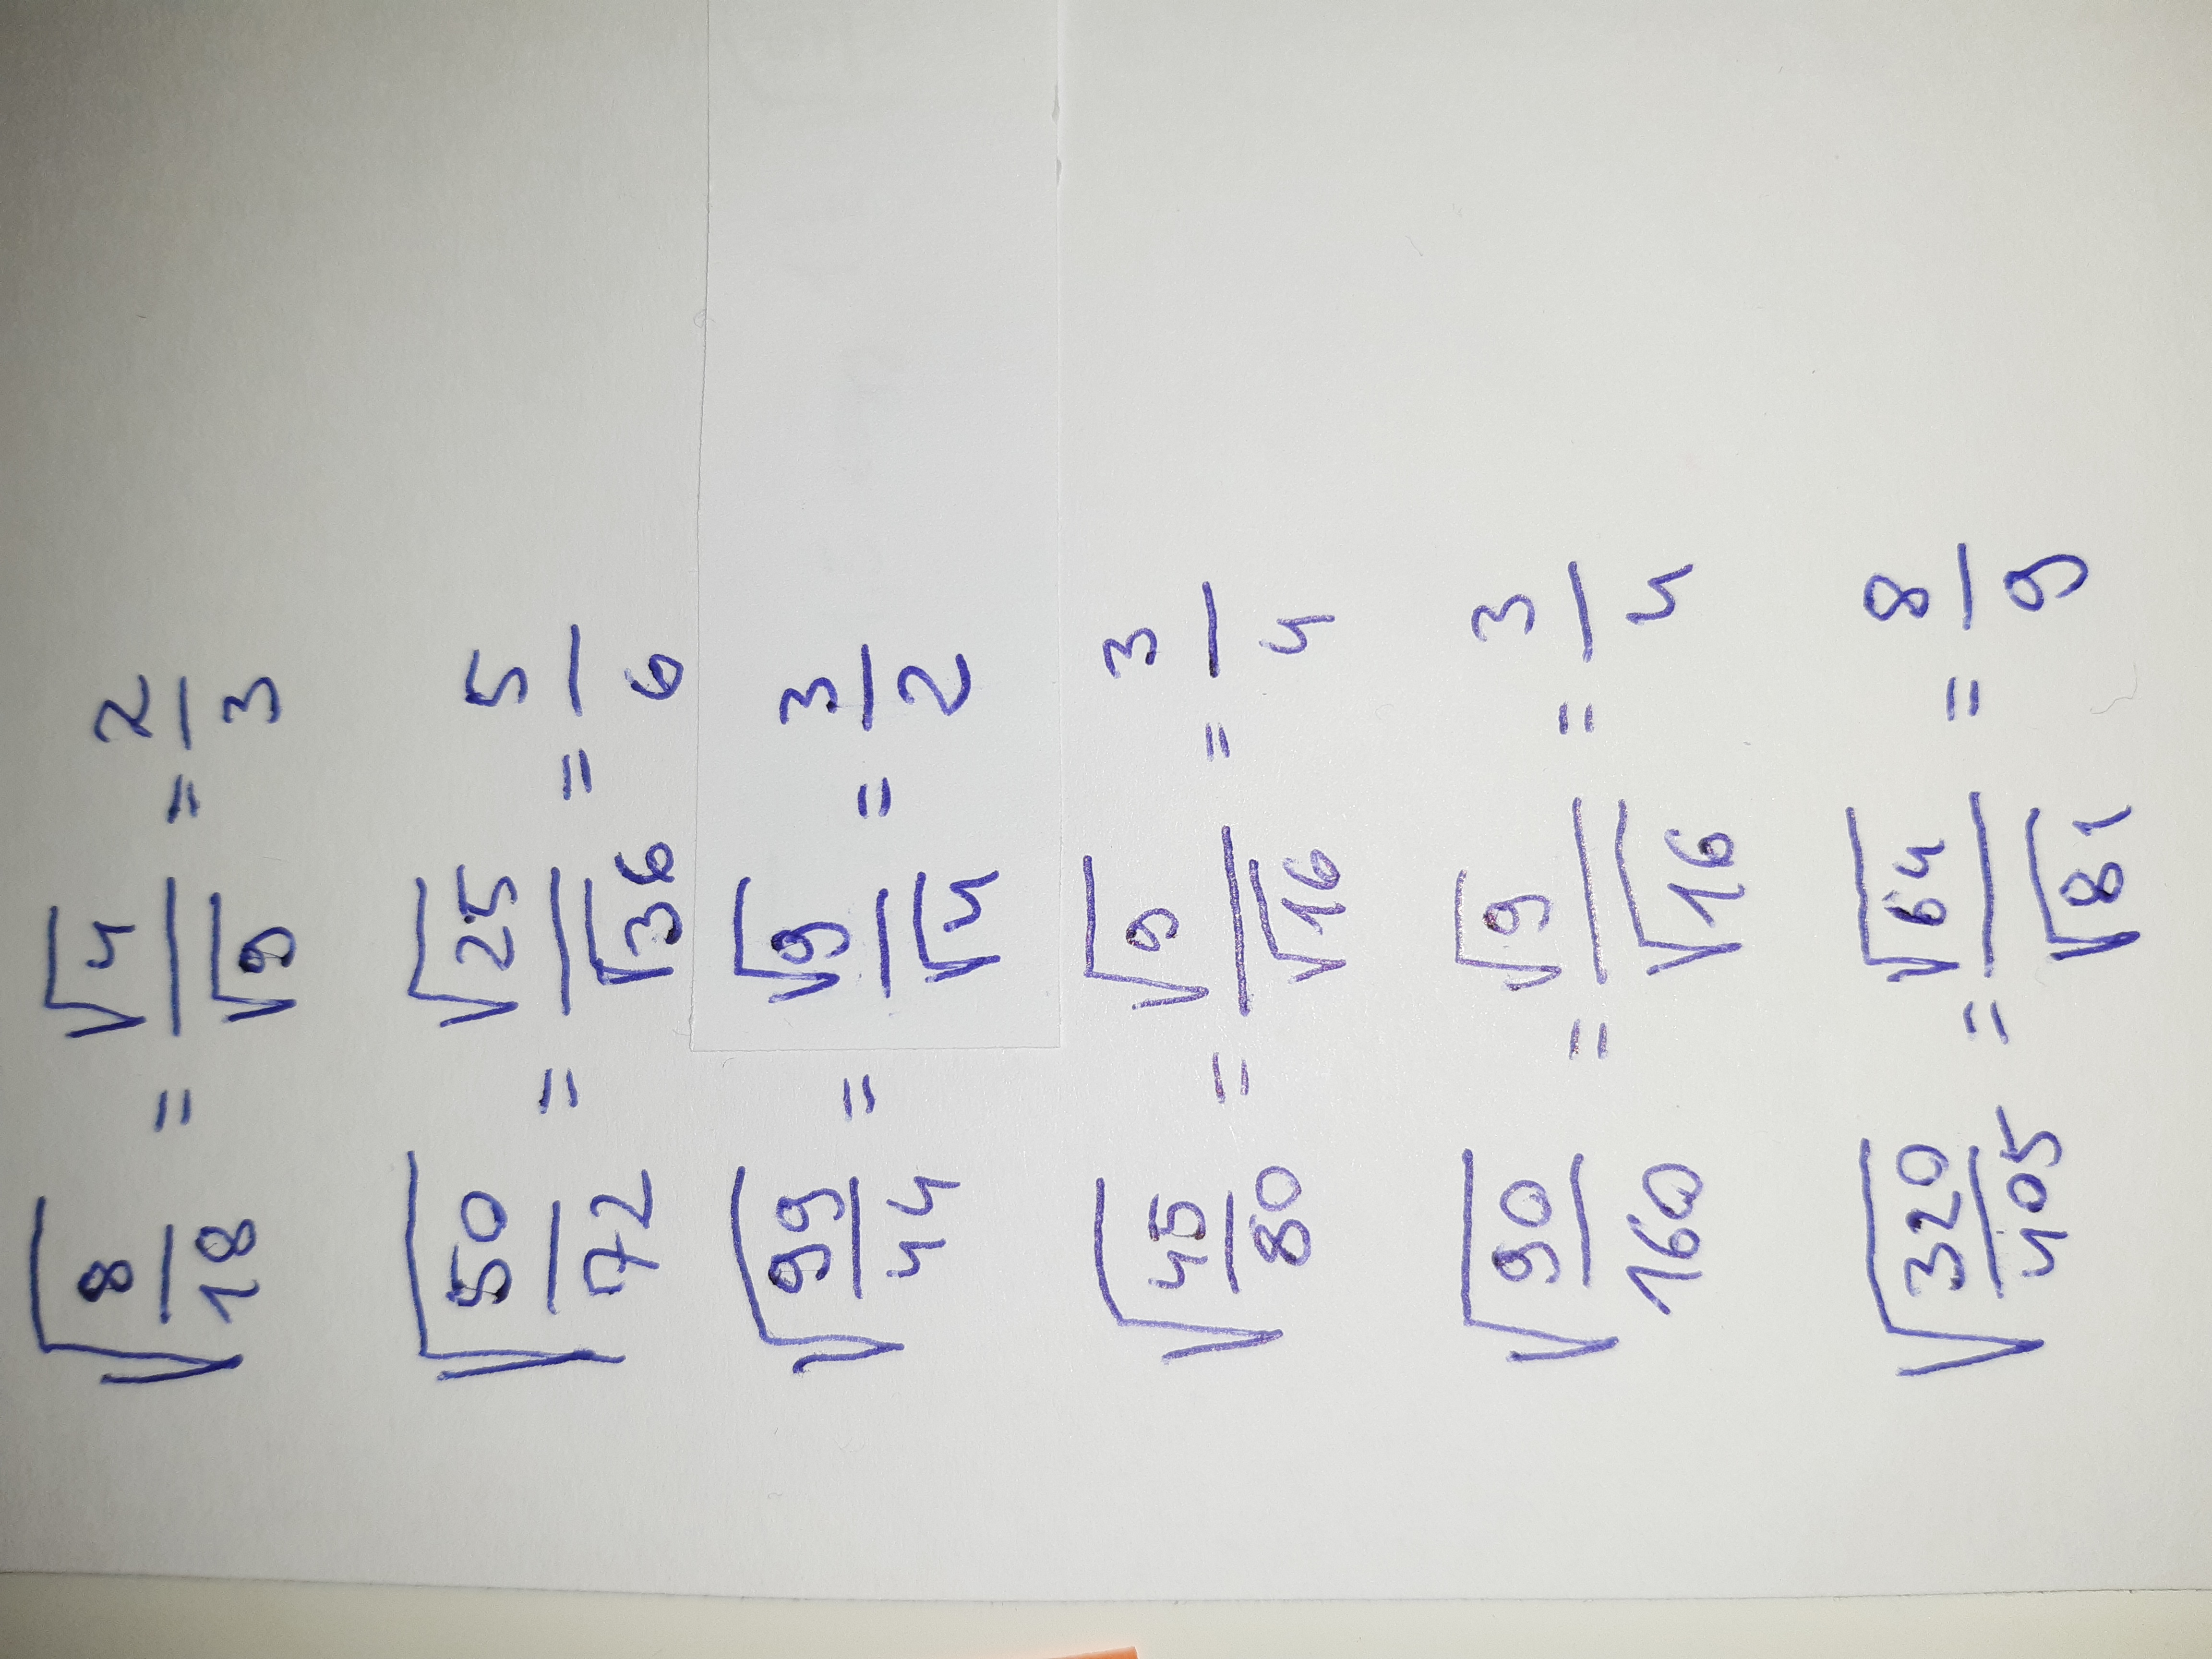 √(8/18) = √4/√9 = 2/3
√(50/72) = √25/√36 = 5/6
√(99/44) = √9/√4 = 3/2
√(45/80) = √9/√16 = 3/4
√(90/160) = √9/√16 = 3/4
√(320/405) = √64/√81 = 8/9